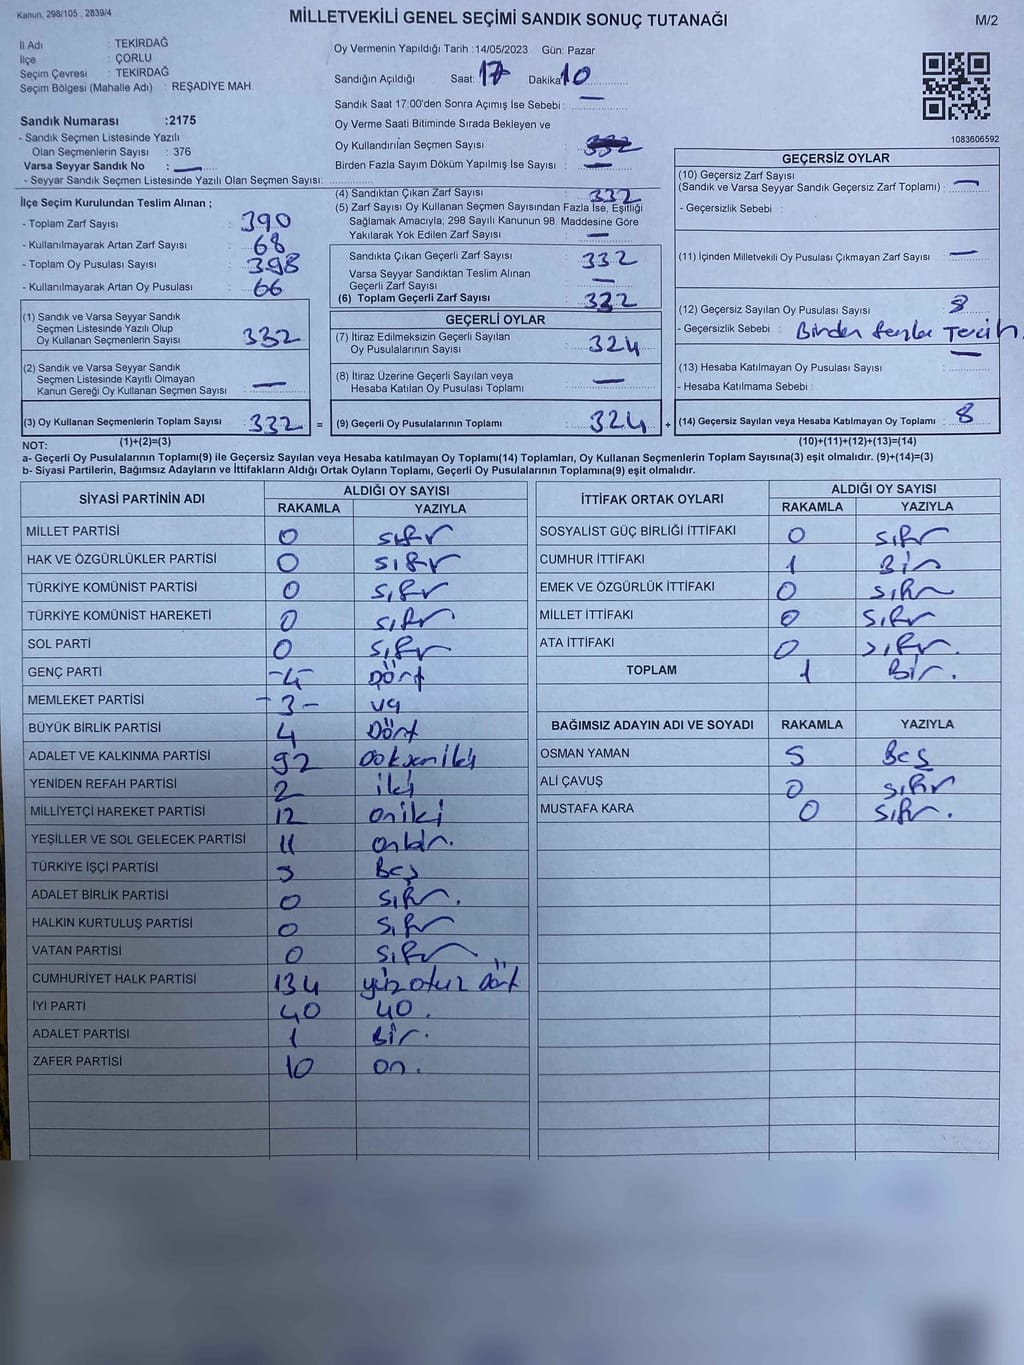 Kanun, 298/105 , 2839/4
MİLLETVEKİLİ GENEL SEÇİMİ SANDIK SONUÇ TUTANAĞI
M/2
İl Adı : TEKİRDAĞ
İlçe : ÇORLU
Seçim Çevresi : TEKİRDAĞ
Seçim Bölgesi (Mahalle Adı) : REŞADİYE MAH.
Oy Vermenin Yapıldığı Tarih :14/05/2023 Gün: Pazar
Sandığın Açıldığı Saat: 17 Dakika 10
Sandık Saat 17:00'den Sonra Açımış İse Sebebi : —
Oy Verme Saati Bitiminde Sırada Bekleyen ve
Oy Kullandırılan Seçmen Sayısı :
Birden Fazla Sayım Döküm Yapılmış İse Sayısı : —
1083606592
Sandık Numarası :2175
- Sandık Seçmen Listesinde Yazılı
Olan Seçmenlerin Sayısı : 376
Varsa Seyyar Sandık No : —
- Seyyar Sandık Seçmen Listesinde Yazılı Olan Seçmen Sayısı:
İlçe Seçim Kurulundan Teslim Alınan ;
- Toplam Zarf Sayısı : 390
- Kullanılmayarak Artan Zarf Sayısı : 68
- Toplam Oy Pusulası Sayısı : 398
- Kullanılmayarak Artan Oy Pusulası : 66
(1) Sandık ve Varsa Seyyar Sandık
Seçmen Listesinde Yazılı Olup
Oy Kullanan Seçmenlerin Sayısı : 332
(2) Sandık ve Varsa Seyyar Sandık
Seçmen Listesinde Kayıtlı Olmayan
Kanun Gereği Oy Kullanan Seçmen Sayısı : —
(3) Oy Kullanan Seçmenlerin Toplam Sayısı : 332
(4) Sandıktan Çıkan Zarf Sayısı : 332
(5) Zarf Sayısı Oy Kullanan Seçmen Sayısından Fazla İse, Eşitliği
Sağlamak Amacıyla; 298 Sayılı Kanunun 98. Maddesine Göre
Yakılarak Yok Edilen Zarf Sayısı : —
Sandıkta Çıkan Geçerli Zarf Sayısı : 332
Varsa Seyyar Sandıktan Teslim Alınan
Geçerli Zarf Sayısı : —
(6) Toplam Geçerli Zarf Sayısı : 332
GEÇERLİ OYLAR
(7) İtiraz Edilmeksizin Geçerli Sayılan
Oy Pusulalarının Sayısı : 324
(8) İtiraz Üzerine Geçerli Sayılan veya
Hesaba Katılan Oy Pusulası Toplamı : —
= (9) Geçerli Oy Pusulalarının Toplamı : 324 +
GEÇERSİZ OYLAR
(10) Geçersiz Zarf Sayısı
(Sandık ve Varsa Seyyar Sandık Geçersiz Zarf Toplamı) : —
- Geçersizlik Sebebi :
(11) İçinden Milletvekili Oy Pusulası Çıkmayan Zarf Sayısı : —
(12) Geçersiz Sayılan Oy Pusulası Sayısı : 8
- Geçersizlik Sebebi : Birden fazla Tercih.
(13) Hesaba Katılmayan Oy Pusulası Sayısı : —
- Hesaba Katılmama Sebebi :
(14) Geçersiz Sayılan veya Hesaba Katılmayan Oy Toplamı : 8
NOT: (1)+(2)=(3)
(10)+(11)+(12)+(13)=(14)
a- Geçerli Oy Pusulalarının Toplamı(9) ile Geçersiz Sayılan veya Hesaba katılmayan Oy Toplamı(14) Toplamları, Oy Kullanan Seçmenlerin Toplam Sayısına(3) eşit olmalıdır. (9)+(14)=(3)
b- Siyasi Partilerin, Bağımsız Adayların ve İttifakların Aldığı Ortak Oyların Toplamı, Geçerli Oy Pusulalarının Toplamına(9) eşit olmalıdır.
SİYASİ PARTİNİN ADI ALDIĞI OY SAYISI
RAKAMLA YAZIYLA
MİLLET PARTİSİ 0 sıfır
HAK VE ÖZGÜRLÜKLER PARTİSİ 0 sıfır
TÜRKİYE KOMÜNİST PARTİSİ 0 sıfır
TÜRKİYE KOMÜNİST HAREKETİ 0 sıfır
SOL PARTİ 0 sıfır
GENÇ PARTİ -4- Dört
MEMLEKET PARTİSİ -3- üç
BÜYÜK BİRLİK PARTİSİ 4 Dört
ADALET VE KALKINMA PARTİSİ 92 Doksaniki
YENİDEN REFAH PARTİSİ 2 iki
MİLLİYETÇİ HAREKET PARTİSİ 12 oniki
YEŞİLLER VE SOL GELECEK PARTİSİ 11 onbir.
TÜRKİYE İŞÇİ PARTİSİ 5 Beş
ADALET BİRLİK PARTİSİ 0 sıfır.
HALKIN KURTULUŞ PARTİSİ 0 sıfır
VATAN PARTİSİ 0 sıfır
CUMHURİYET HALK PARTİSİ 134 yüz otuz dört
İYİ PARTİ 40 40.
ADALET PARTİSİ 1 Bir.
ZAFER PARTİSİ 10 on.
İTTİFAK ORTAK OYLARI ALDIĞI OY SAYISI
RAKAMLA YAZIYLA
SOSYALİST GÜÇ BİRLİĞİ İTTİFAKI 0 sıfır
CUMHUR İTTİFAKI 1 Bir
EMEK VE ÖZGÜRLÜK İTTİFAKI 0 sıfır
MİLLET İTTİFAKI 0 sıfır
ATA İTTİFAKI 0 sıfır.
TOPLAM 1 Bir.
BAĞIMSIZ ADAYIN ADI VE SOYADI RAKAMLA YAZIYLA
OSMAN YAMAN 5 Beş
ALİ ÇAVUŞ 0 sıfır
MUSTAFA KARA 0 sıfır.